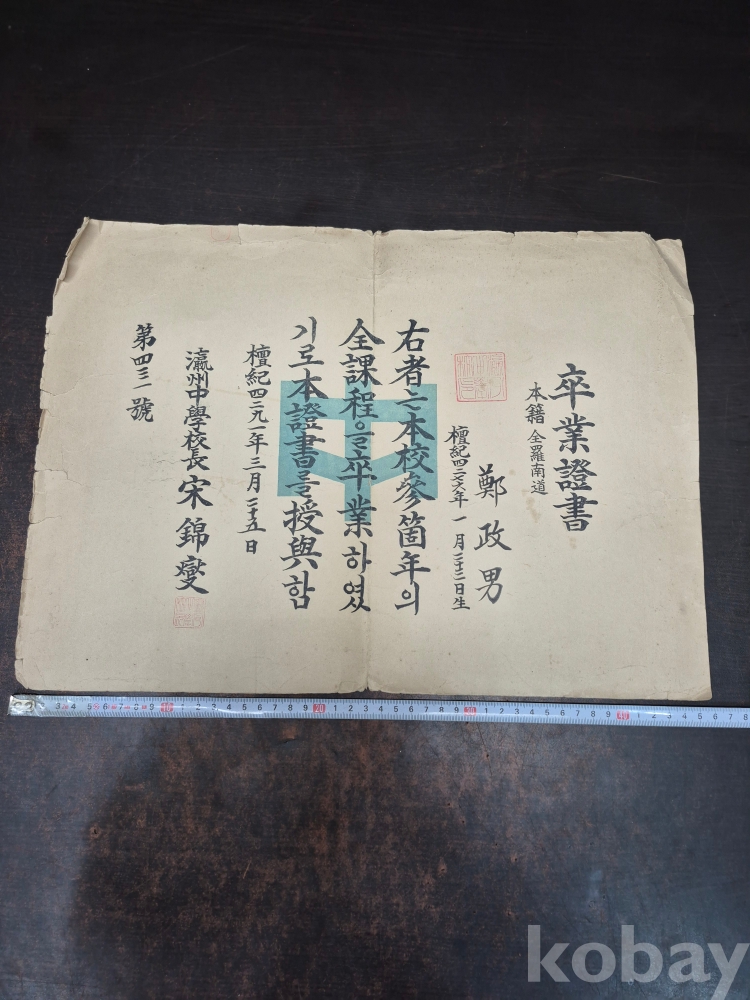 卒業證書
本籍 全羅南道
鄭政男
檀紀四二七六年一月二十二日生
右者는本校參箇年의
全課程을卒業하였
기로本證書를授與함
檀紀四二九一年三月二十五日
瀛州中學校長 宋錦燮
第四三一號
kobay